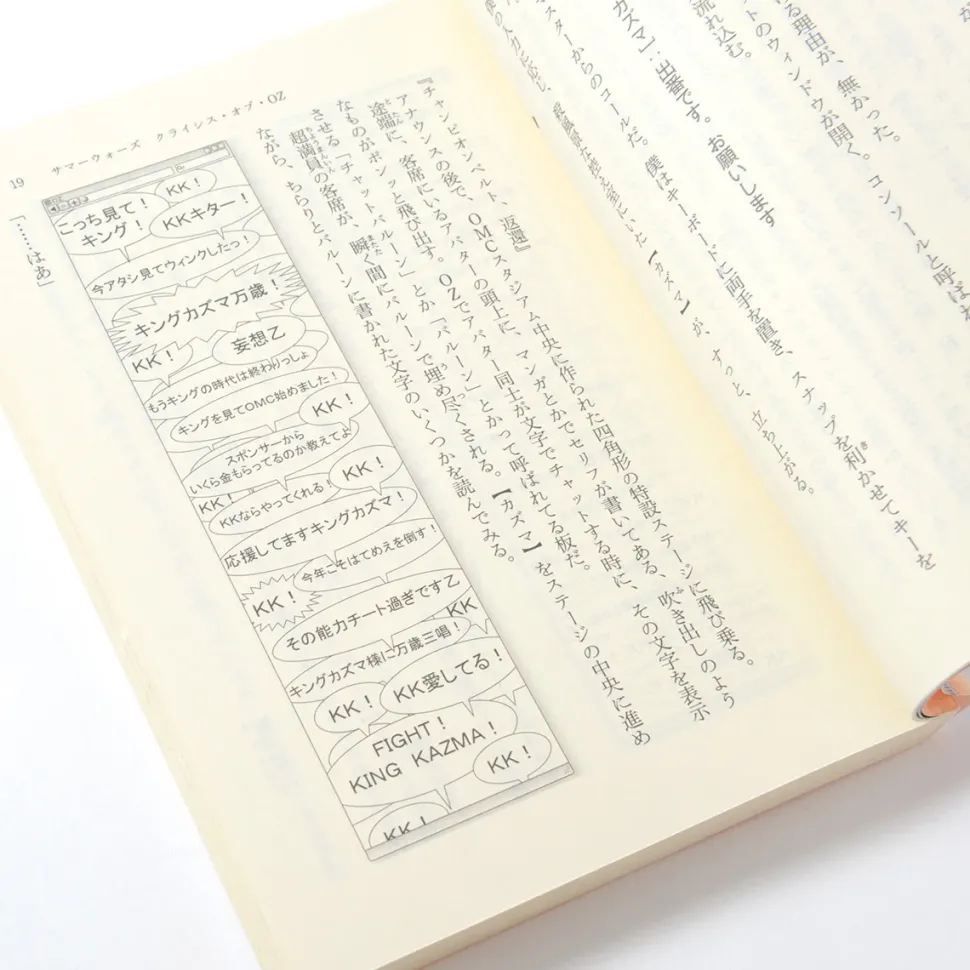 る理由が、無かった。
トのウィンドウが開く。コンソールと呼ばれ
流れ込む。
カズマ】、出番です。お願いします
スターからのコールだ。僕はキーボードに両手を置き、スナップを利かせてキーを
【カズマ】が、すっと、立ち上がる。
『チャンピオンベルト、返還』
アナウンスの後で、OMCスタジアム中央に作られた四角形の特設ステージに飛び乗る。
途端に、客席にいるアバターの頭上に、マンガとかでセリフが書いてある、吹き出しのよう
なものがポンッと飛び出す。OZでアバター同士が文字でチャットする時に、その文字を表示
させる「チャットバルーン」とか「バルーン」とかって呼ばれてる板だ。
超満員の客席が、瞬く間にバルーンで埋め尽くされる。【カズマ】をステージの中央に進め
ながら、ちらりとバルーンに書かれた文字のいくつかを読んでみる。
KK!
こっち見て!
キング!
KKキター!
今アタシ見てウィンクしたっ!
キングカズマ万歳!
KK!
妄想乙
もうキングの時代は終わりっしょ
キングを見てOMC始めました!
KK!
スポンサーから
いくら金もらってるのか教えてよ
KK!
KK!
KKならやってくれる!
応援してますキングカズマ!
今年こそはてめえを倒す!
KK!
その能力チート過ぎです乙
KK
キングカズマ様に万歳三唱!
KK!
KK愛してる!
FIGHT!
KING KAZMA!
KK!
KK!
「……はあ」
19 サマーウォーズ クライシス・オブ・OZ